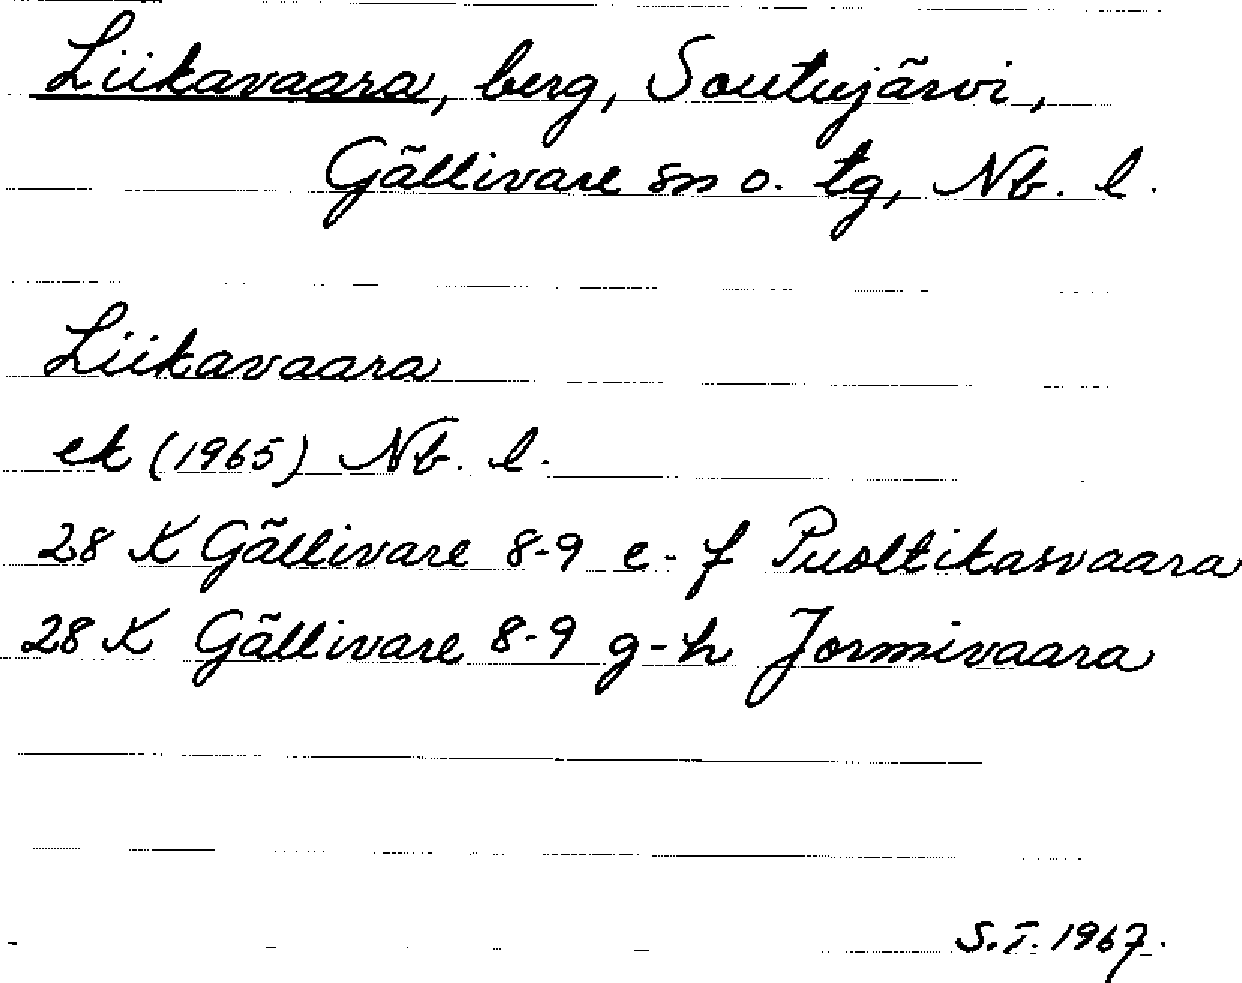 Liikavaara, berg, Soutujärvi,
Gällivare sn o. tg, Nb. l.
Liikavaara
ek (1965) Nb. l.
28 K Gällivare 8-9 e-f Puoltikasvaara
28 K Gällivare 8-9 g-h Jormivaara
S.I. 1967.